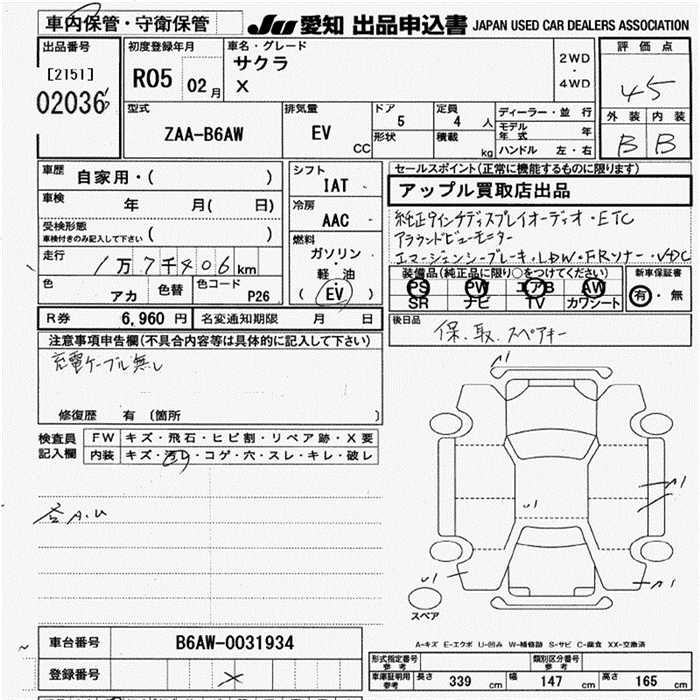 車内保管・守衛保管
JU 愛知 出品申込書 JAPAN USED CAR DEALERS ASSOCIATION
出品番号
[2151]
02036
初度登録年月
R05 02月
車名・グレード
サクラ
X
2WD
・
4WD
評価点
4.5
外装 内装
B B
型式
ZAA-B6AW
排気量
EV
CC
ドア
5
形状
定員
4 人
積載
kg
ディーラー・並行
モデル年式 年
ハンドル 左・右
車歴
自家用・( )
車検
年 月( 日)
受検形態
車検付きのみ記入して下さい ( )
走行
1万7千406km
色
アカ
色替
色コード
P26
シフト
IAT
冷房
AAC
燃料
ガソリン
・
軽油
( EV )
セールスポイント(正常に機能するものに限ります)
アップル買取店出品
純正9インチディスプレイオーディオ・ETC
アラウンドビューモニター
エマージェンシーブレーキ・LDW・FRソナー・VDC
装備品(純正品に限り○をつけてください)
PS PW エアB AW
SR ナビ TV カワシート
新車保証書
有・無
R券 6,960 円
名変通知期限 月 日
後日品
保、取、スペアキー
注意事項申告欄(不具合内容等は具体的に記入して下さい)
充電ケーブル無し
修復歴 有 〔箇所
検査員
記入欄
FW キズ・飛石・ヒビ割・リペア跡・X要
内装 キズ・汚レ・コゲ・穴・スレ・キレ・破レ
各A.U
スペア
A-キズ E-エクボ U-凹み W-補修跡 S-サビ C-腐食 XX-交換済
車台番号
B6AW-0031934
登録番号
型式指定番号
参考
類別区分番号
参考
車庫証明用
参考
長さ 339 cm
幅 147 cm
高さ 165 cm